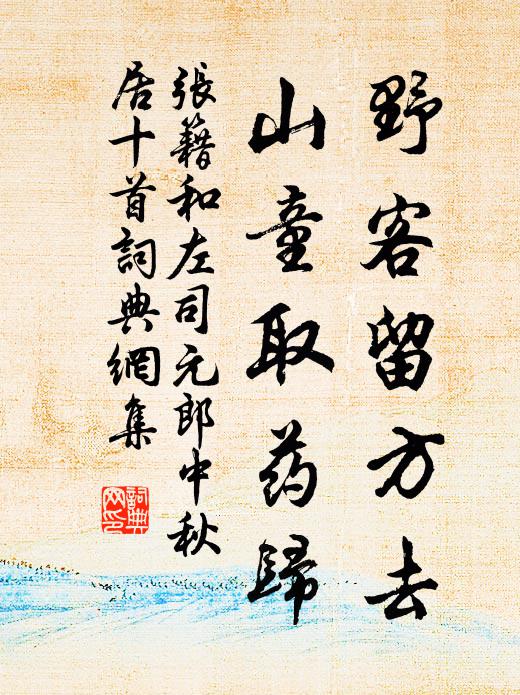 野客留方去
山童取药歸
張籍和左司元郎中秋
居十首詞典網集
詞典
网印